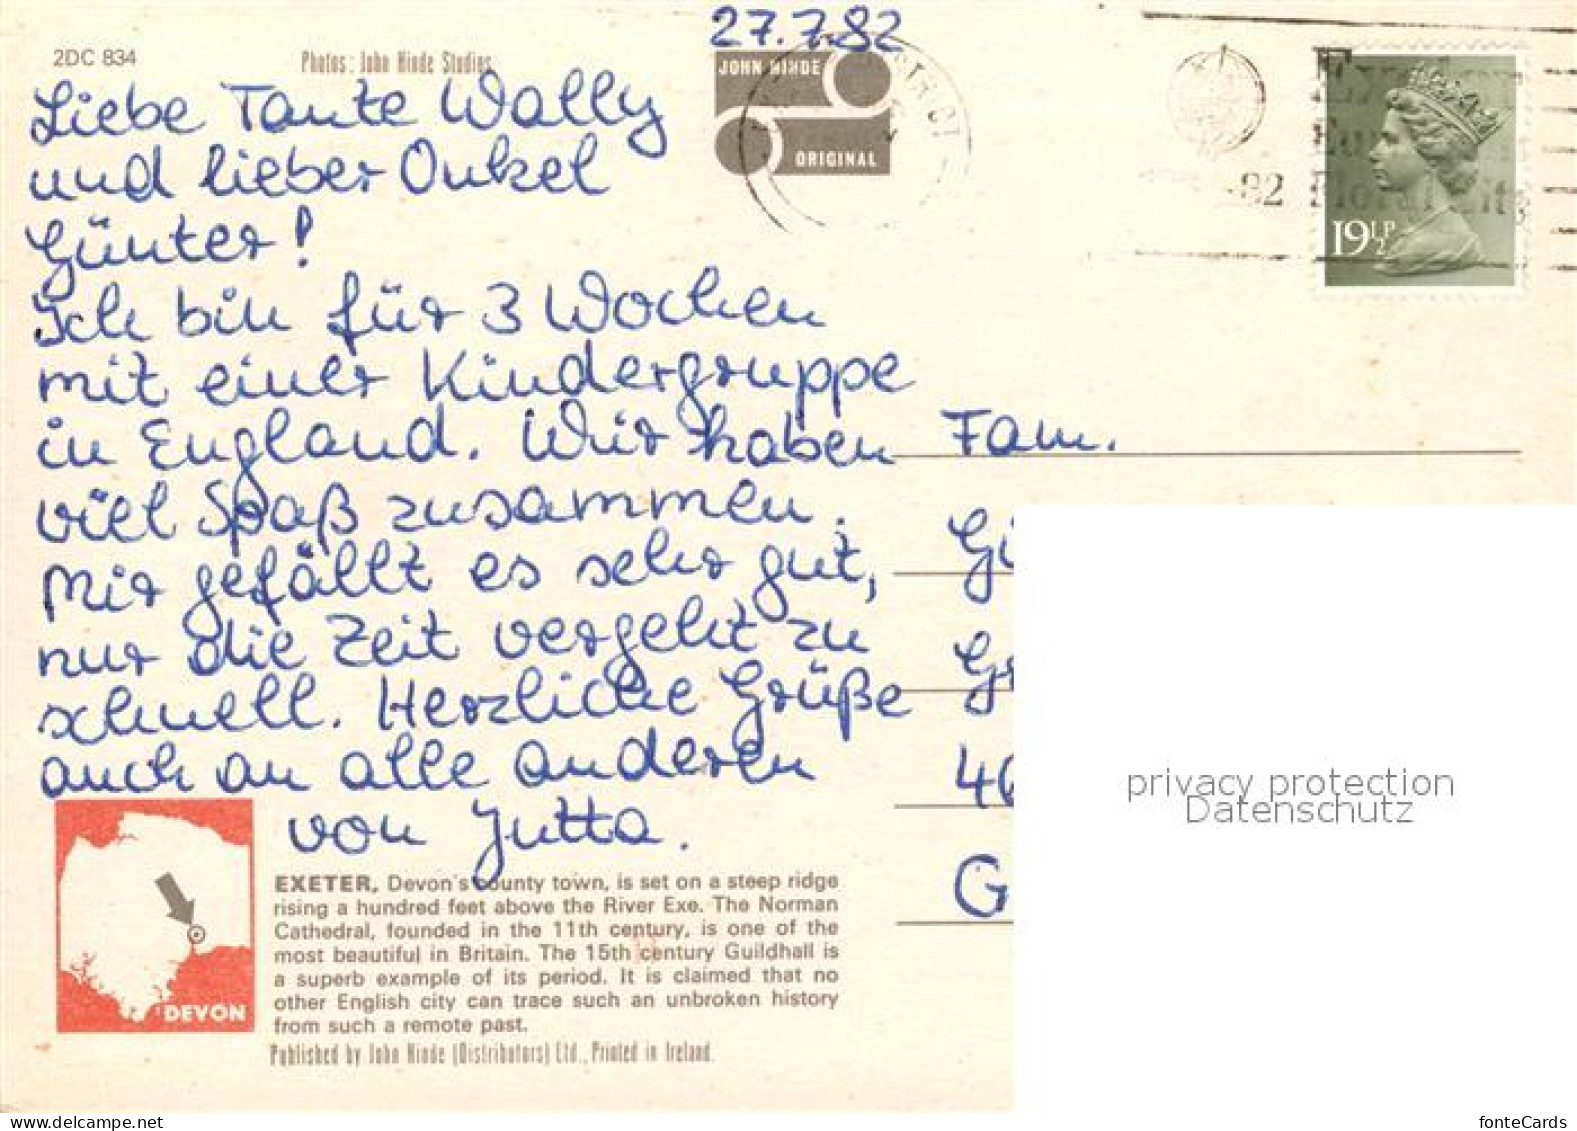 27.7.82
2DC 834
Photos: John Hinde Studios
JOHN HINDE
ORIGINAL
Liebe Tante Wally
und lieber Onkel
Günter!
Ich bin für 3 Wochen
mit einer Kindergruppe
in England. Wir haben
viel Spaß zusammen.
Mir gefällt es sehr gut,
nur die Zeit vergeht zu
schnell. Herzliche Grüße
auch an alle anderen
von Jutta.
82
19½P
Fam.
46
G
privacy protection
Datenschutz
DEVON
EXETER, Devon's county town, is set on a steep ridge
rising a hundred feet above the River Exe. The Norman
Cathedral, founded in the 11th century, is one of the
most beautiful in Britain. The 15th century Guildhall is
a superb example of its period. It is claimed that no
other English city can trace such an unbroken history
from such a remote past.
Published by John Hinde (Distributors) Ltd., Printed in Ireland.
www.delcampe.net
fonteCards